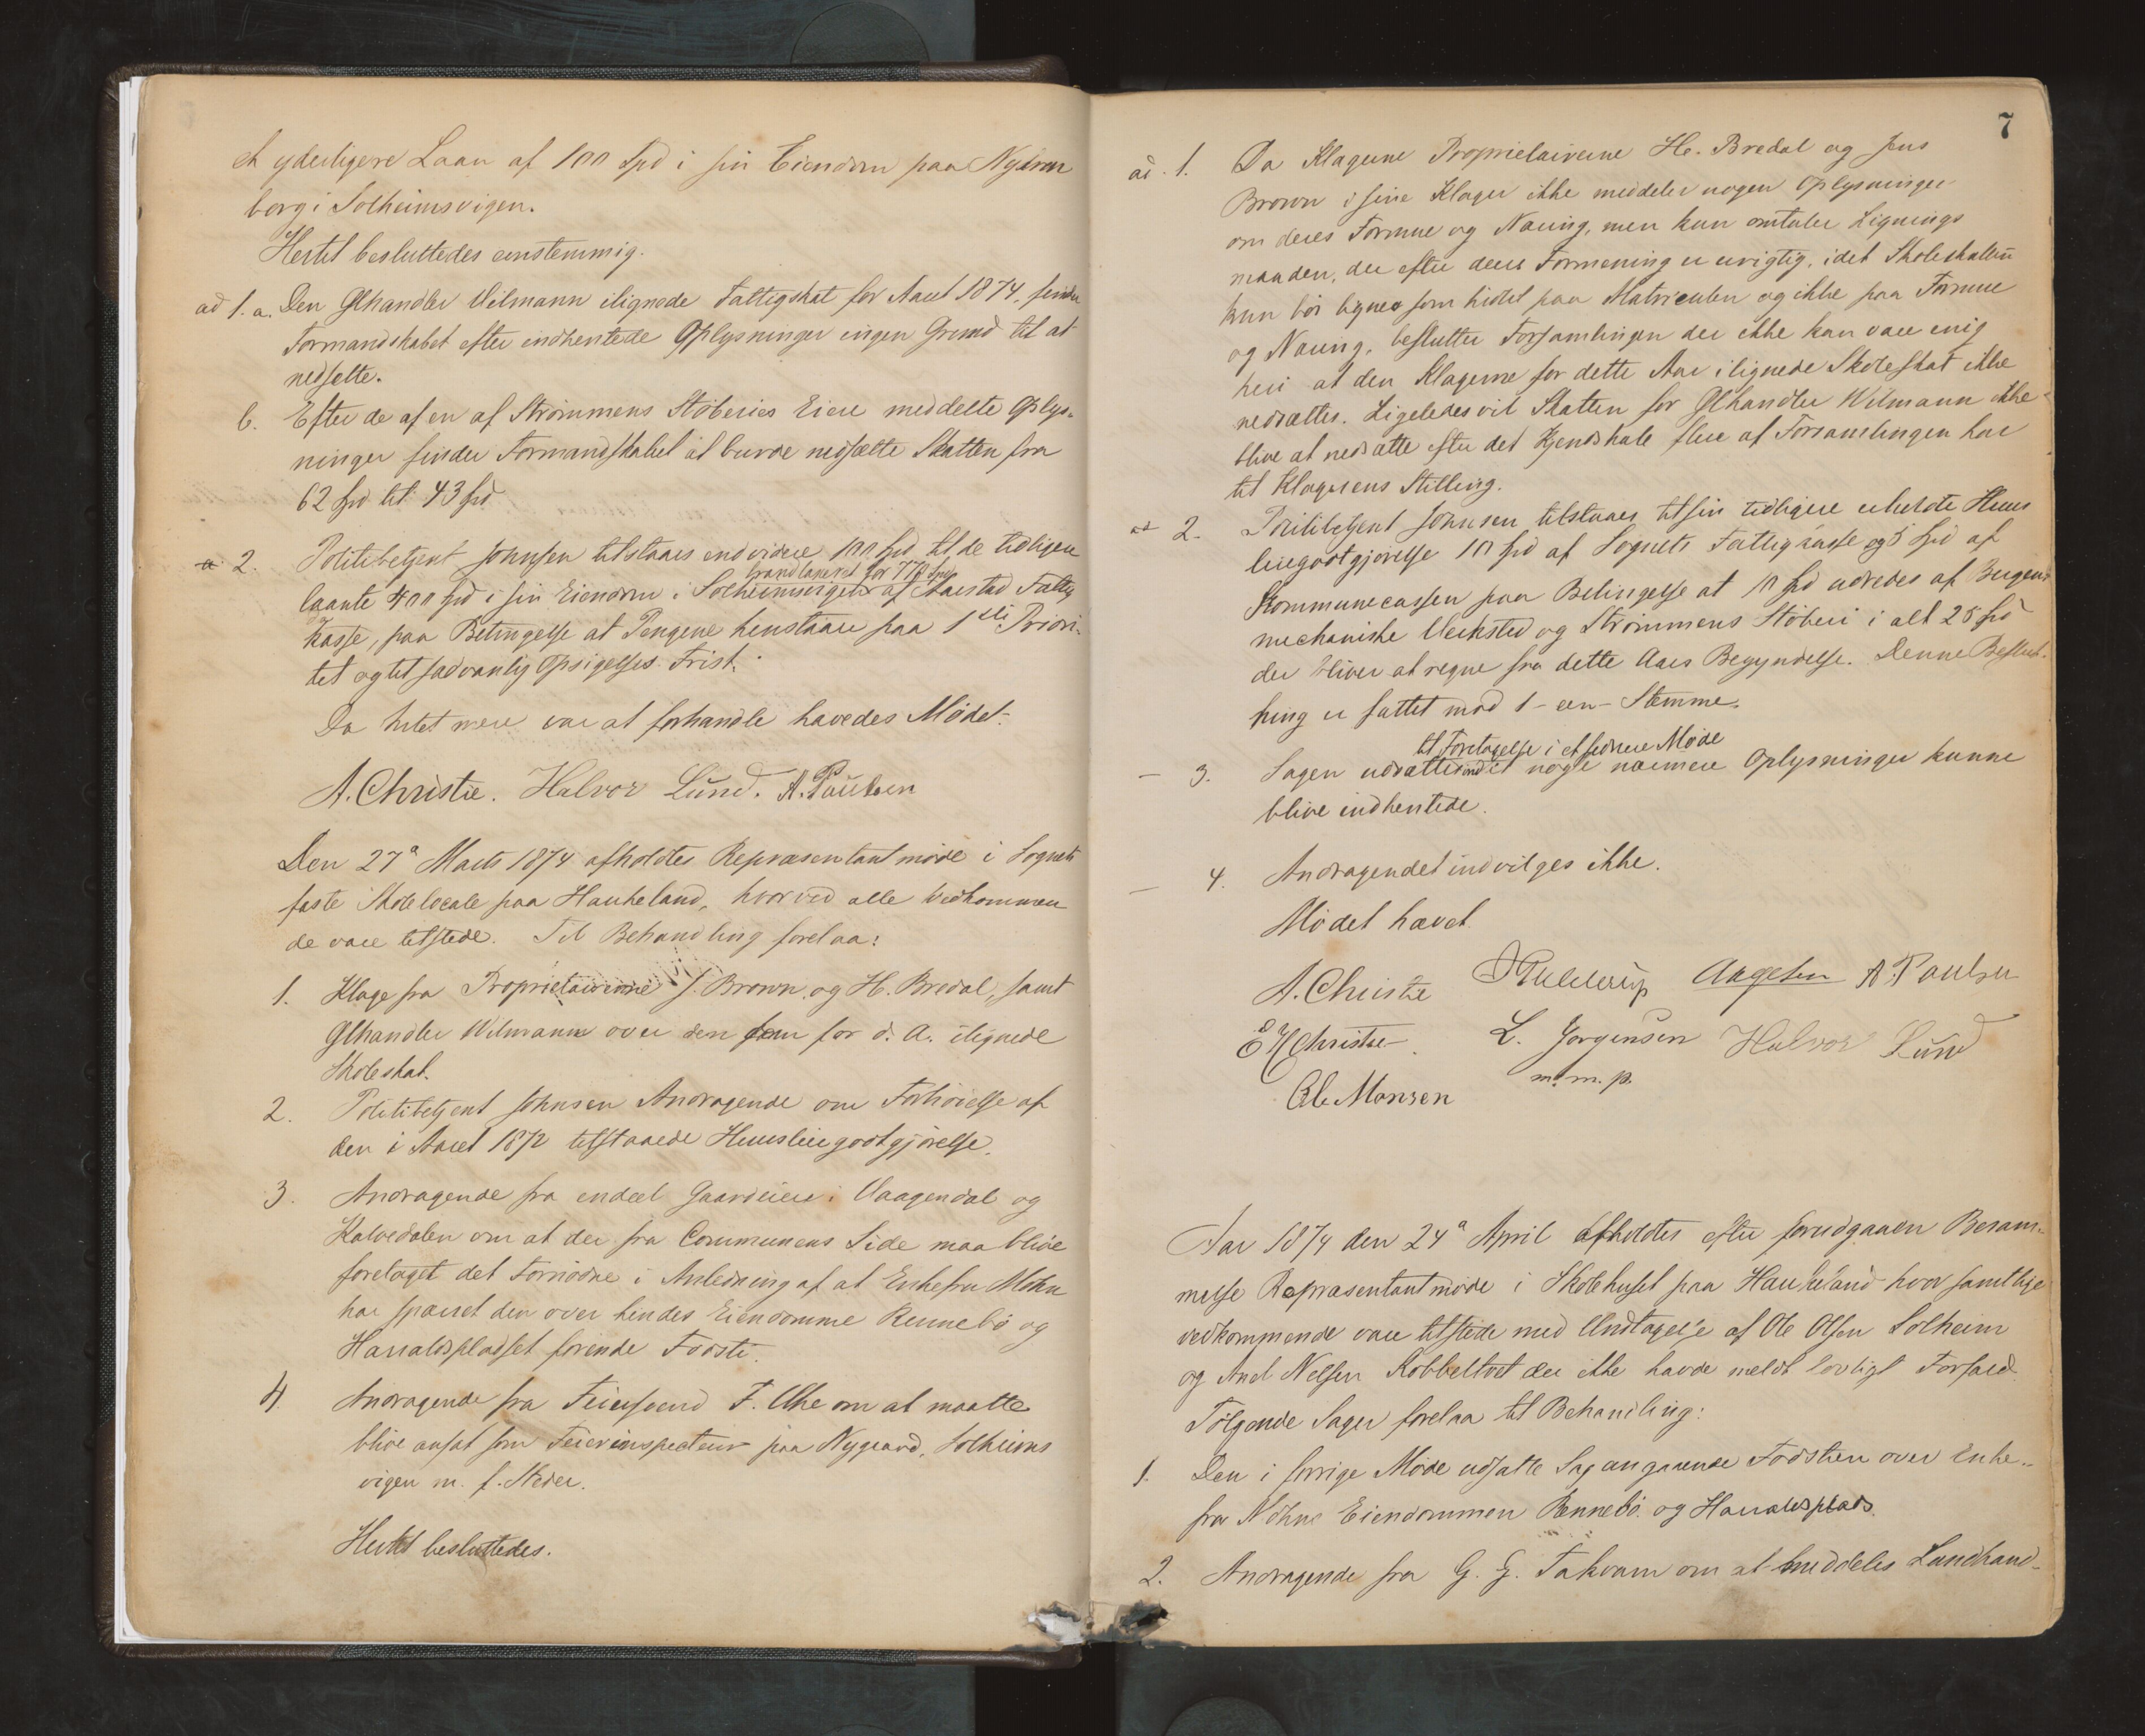 et yderligere Laan af 100 Spd i sin Eiendom paa Nydam
borg i Solheimsvigen.
Hertil besluttedes eenstemmig.
ad 1. a. Den Ølhandler Wilmann ilignede Fattigskat for Aaret 1874, finder
Formandskabet efter indhentede Oplysninger ingen Grund til at
nedsætte.
b. Efter de af en af Strømmens Støberies Eiere meddelte Oplys-
ninger finder Formandskabet at burde nedsætte Skatten fra
62 Spd til 43 Spd
2. Politibetjent Johnsen tilstaaes end videre 100 Spd til de tidligere
brandtaxeret for 770 Spd
laante 400 Spd i sin Eiendom i Solheimsvigen af Aarstad Fattig
kasse, paa Betingelse at Pengene henstaaer paa 1ste Priori-
tet og til sædvanlig Opsigelses Frist.
Da Intet mere var at forhandle hævedes Mødet.
A. Christie. Halvor Lund. A. Paulsen
Den 27de Marts 1874 afholdtes Repræsentantmøde i Sognets
faste Skolelocale paa Haukeland, hvorved alle Vedkommen
de vare tilstede. Til Behandling forelaa:
1. Klage fra Proprietairerne J. Brown og H. Bredal, samt
Ølhandler Wilmann over den dem for d. A. ilignede
Skoleskat.
2. Politibetjent Johnsen Andragende om Forhøielse af
den i Aaret 1872 tilstaaede Huusleiegodtgjørelse.
3. Andragende fra endeel Gaardeiere i Vaagendal og
Kalvedalen om at der fra Communens Side maa blive
foretaget det Fornødne i Anledning af at Enkefru Mohn
har spærret den over hendes Eiendomme Rennebø og
Haraldspladset førende Fodsti.
4. Andragende fra Feiersvend F. Uhe om at maatte
blive ansat som Feierinspecteur paa Nygaard, Solheims
vigen m. fl. Steder.
Hertil besluttedes.
7
ad. 1. Da Klagerne Proprietairerne H. Bredal og Jens
Brown i sine Klager ikke meddeler nogen Oplysninger
om deres Formue og Næring, men kun omtaler Lignings
maaden, der efter deres Formening er urigtig, idet Skoleskatten
kun bør lignes som hidtil paa Matriculen og ikke paa Formue
og Næring, beslutter Forsamlingen der ikke kan være enig
heri at den Klagerne for dette Aar ilignede Skoleskat ikke
nedsættes. Ligeledes vil Skatten for Ølhandler Wilmann ikke
blive at nedsætte efter det Kjendskab flere af Forsamlingen har
til Klagerens Stilling.
ad 2. Politibetjent Johnsen tilstaaes til sin tidligere erholdte Huus
leiegodtgjørelse 10 Spd af Sognets Fattigkasse og 5 Spd af
Kommunecassen paa Betingelse at 10 Spd udredes af Bergens
mechaniske Værksted og Strømmens Støberi i alt 25 Spd
der bliver at regne fra dette Aars Begyndelse. Denne Beslut-
ning er fattet mod 1 - een - Stemme.
til Foretagelse i et senere Møde
— 3. Sagen udsættes indtil nogle nærmere Oplysninger kunne
blive indhentede.
— 4. Andragendet indvilges ikke.
Mødet hævet
A. Christie Aagesen A. Paulsen
E H Christie L. Jørgensen Halvor Lund
Ole Monsen m. m. p.
Aar 1874 den 24de April afholdtes efter forudgaaen Beram-
melse Repræsentantmøde i Skolehuset paa Haukeland hvor samtlige
vedkommende vare tilstede med Undtagelse af Ole Olsen Solheim
og And Nelsen Kobbeltvet der ikke havde meldt lovligt Forfald.
Følgende Sager forelaa til Behandling:
1. Den i forrige Møde udsatte Sag angaaende Fodstien over Enke-
fru Mohns Eiendommen Rennebø og Haraldsplads.
2. Andragende fra G. G. Takvam om at meddeles Landhand-